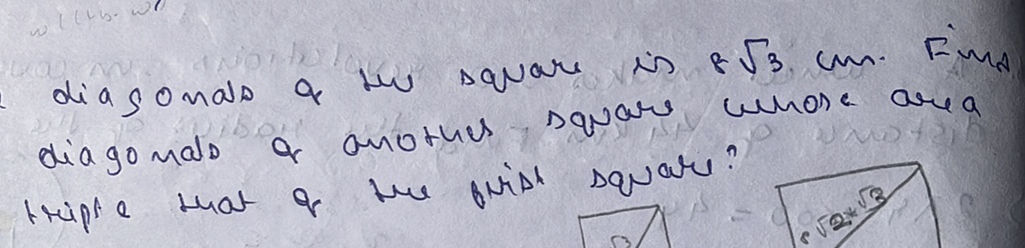 diagonals of the square is 8√3 cm. Find
diagonals of another square whose area
triple that of the first square?
8√2*√3
√3